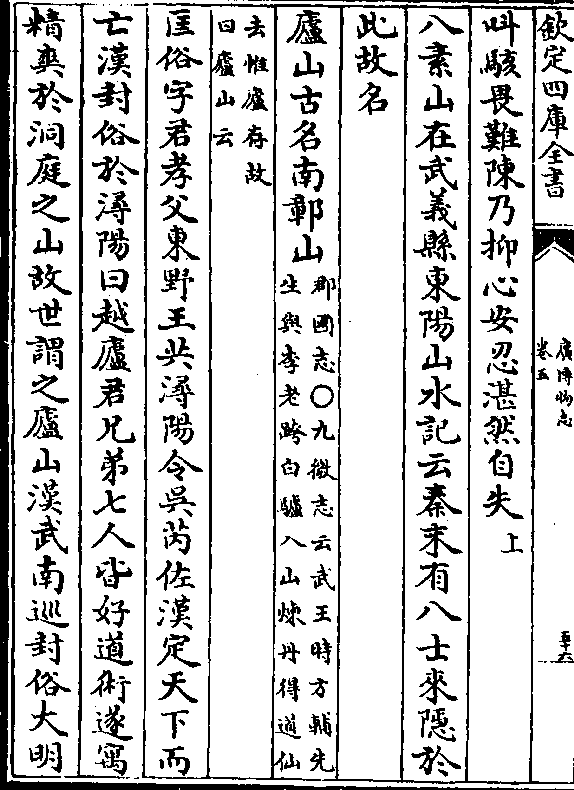 欽定四庫全書
廣博物志
卷五
五十六
叫駭畏難陳乃抑心安忍湛然自失上
八素山在武義縣東陽山水記云秦末有八士來隱於
此故名
廬山古名南鄣山郡國志○九微志云武王時方輔先
生與李老跨白驢入山煉丹得道仙
去惟廬存故
曰廬山云
匡俗字君孝父東野王共潯陽令吳芮佐漢定天下而
亡漢封俗於潯陽曰越廬君兄弟七人皆好道術遂寓
精爽於洞庭之山故世謂之廬山漢武南巡封俗大明